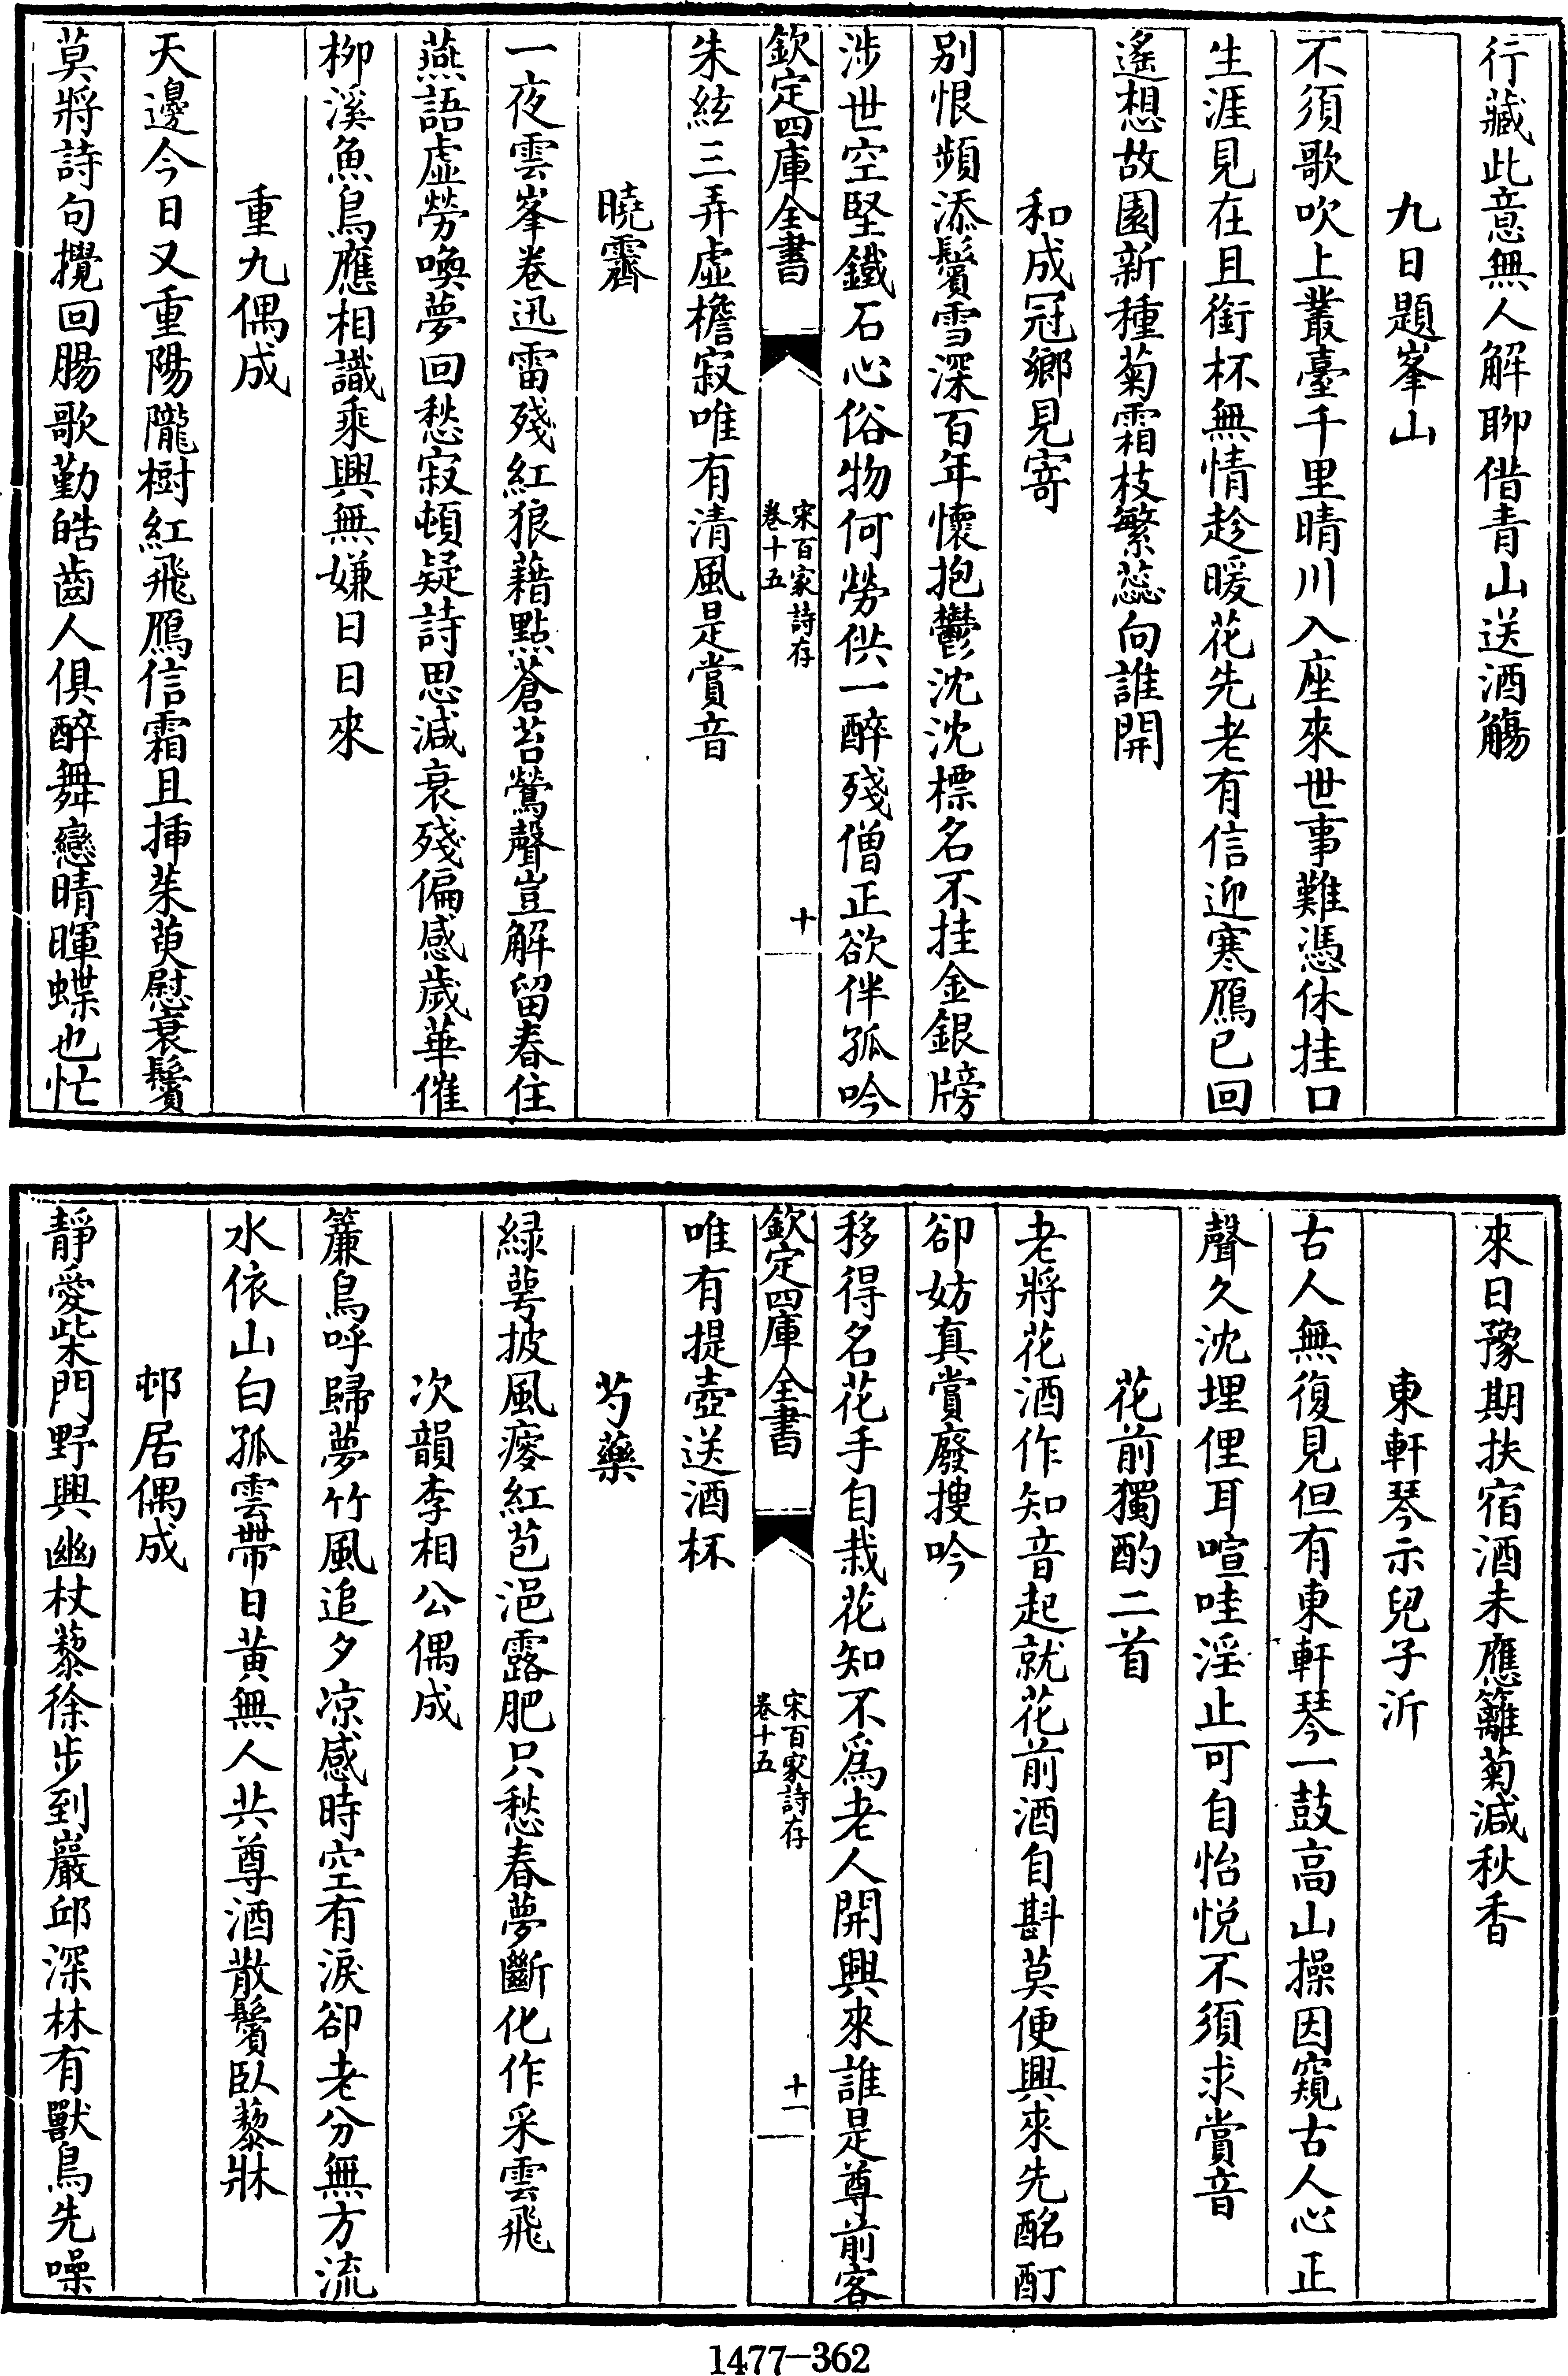 行藏此意無人解聊借青山送酒觴
九日題峯山
不須歌吹上叢臺千里晴川入座來世事難憑休挂口
生涯見在且銜杯無情趁暖花先老有信迎寒鴈已回
遙想故園新種菊霜枝繁蕊向誰開
和成冠鄉見寄
别恨頻添鬢雪深百年懷抱鬱沈沈標名不挂金銀牓
涉世空堅鐵石心俗物何勞供一醉殘僧正欲伴孤吟
欽定四庫全書
宋百家詩存
卷十五
十
朱絃三弄虛檐寂唯有清風是賞音
曉霽
一夜雲峯卷迅雷殘紅狼藉點蒼苔鶯聲豈解留春住
燕語虛勞喚夢回愁寂頓疑詩思減衰殘偏感歲華催
栁溪魚鳥應相識乘興無嫌日日來
重九偶成
天邊今日又重陽隴樹紅飛鴈信霜且挿茱萸慰衰鬢
莫將詩句攪回腸歌勤皓齒人俱醉舞戀晴暉蝶也忙
來日豫期扶宿酒未應籬菊減秋香
東軒琴示兒子沂
古人無復見但有東軒琴一鼓高山操因窺古人心正
聲久沈埋俚耳喧哇淫止可自怡悦不須求賞音
花前獨酌二首
老將花酒作知音起就花前酒自斟莫便興來先酩酊
卻妨真賞廢搜吟
移得名花手自栽花知不爲老人開興來誰是尊前客
欽定四庫全書
宋百家詩存
卷十五
十一
唯有提壺送酒杯
芍藥
緑萼披風瘦紅苞浥露肥只愁春夢斷化作采雲飛
次韻李相公偶成
簾鳥呼歸夢竹風追夕凉感時空有淚卻老分無方流
水依山白孤雲帶日黃無人共尊酒散鬢臥藜牀
邨居偶成
靜愛柴門野興幽杖藜徐步到巖邱深林有獸鳥先噪
1477-362